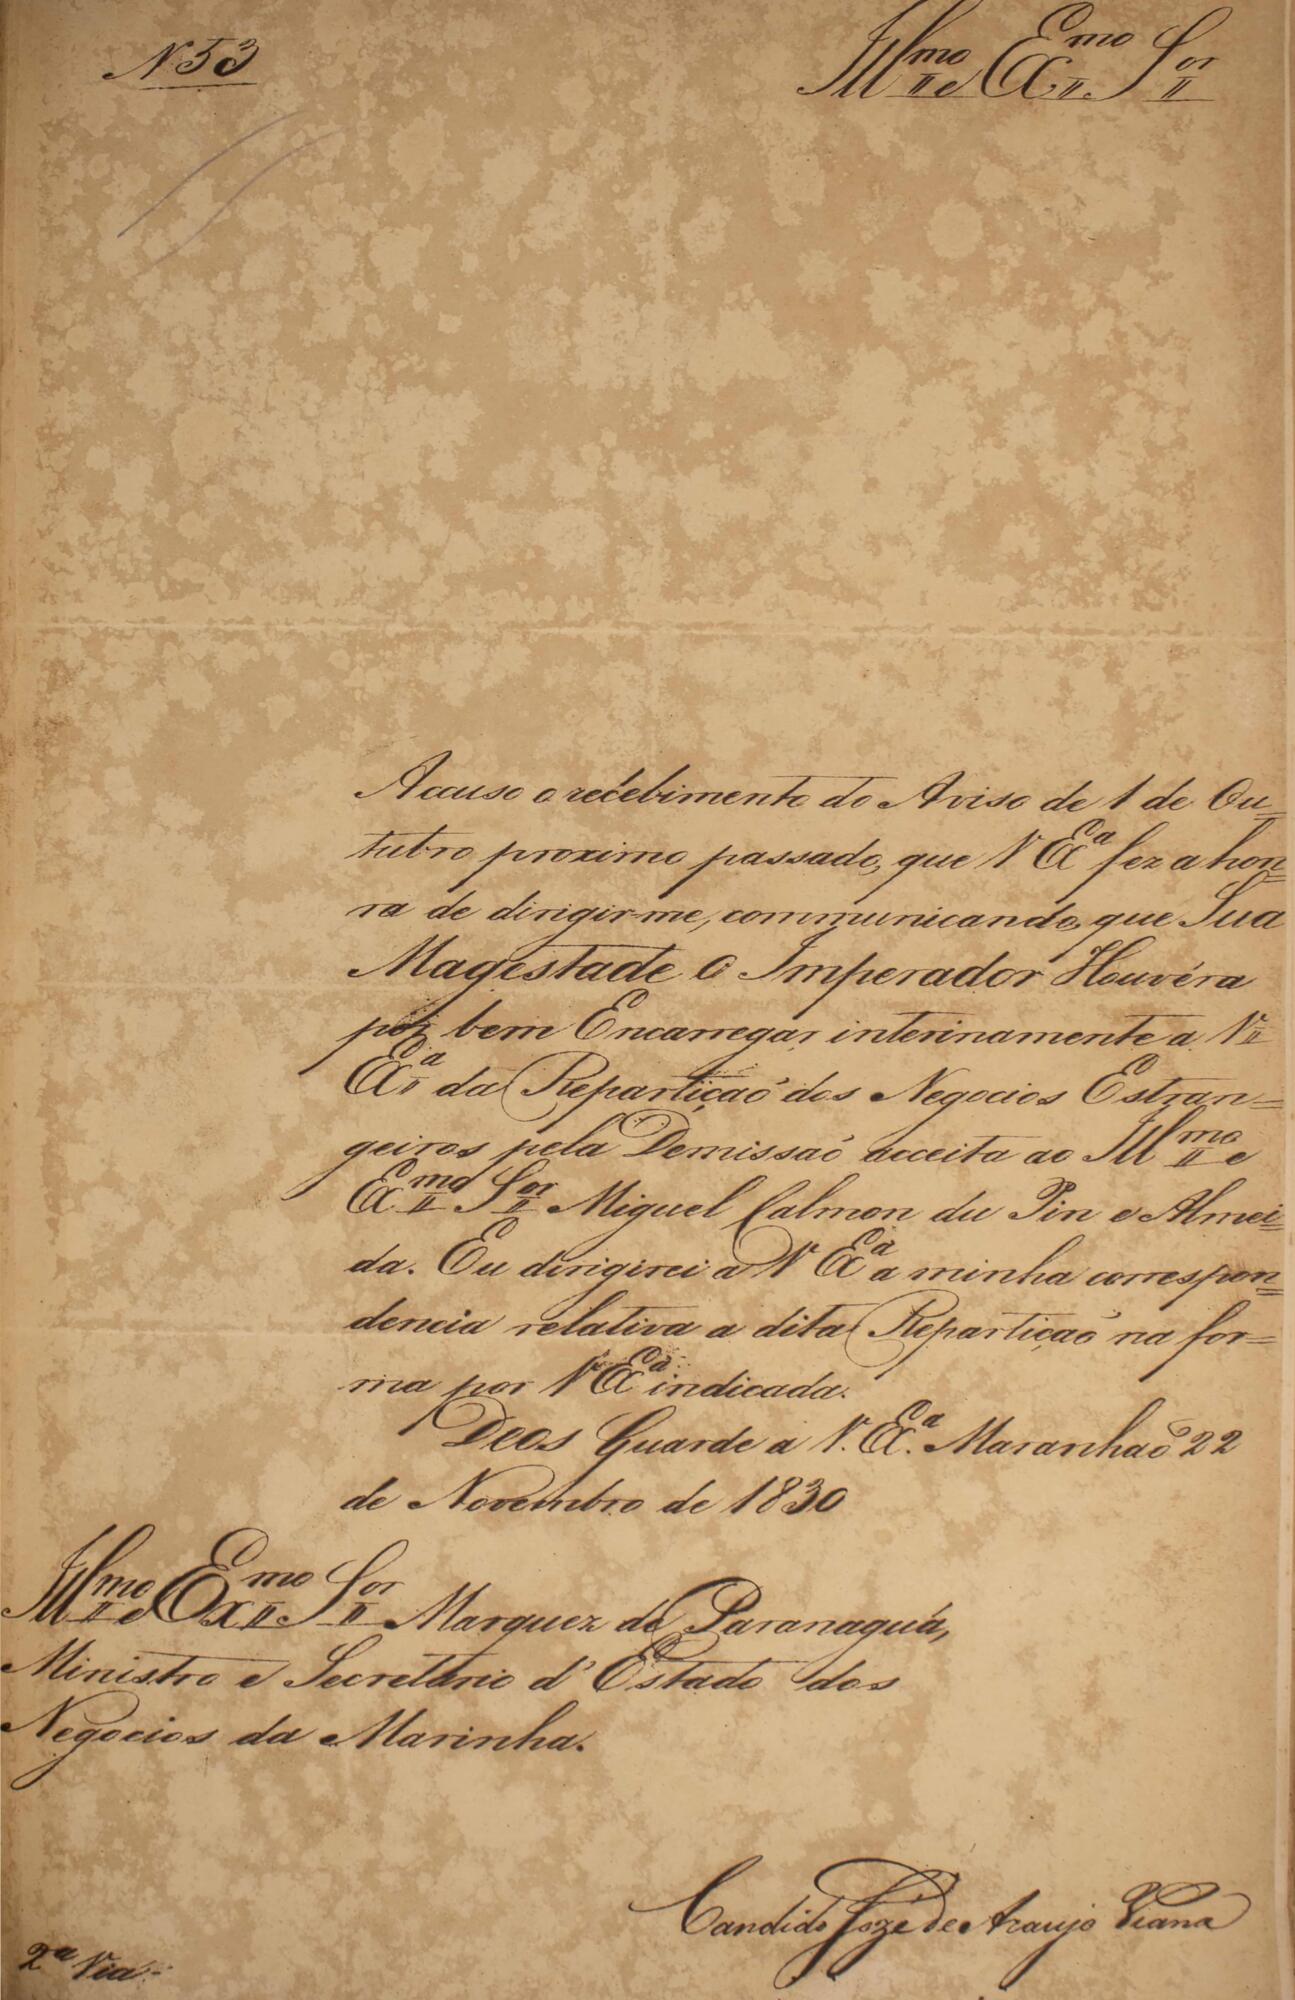 N 53
Illmo e Exmo Sor
Accuso o recebimento do Aviso de 1 de Ou=
tubro proximo passado, que V Exa fez a hon=
ra de dirigir-me, communicando, que Sua
Magestade O Imperador Houvéra
por bem Encarregar interinamente a V.
Exa da Repartiçaõ dos Negocios Estran=
geiros pela Demissaõ acceita ao Illmo e
Exmo Sor Miguel Calmon du Pin e Almei=
da. Eu dirigirei a V Exa a minha correspon=
dencia relativa a dita Repartiçaõ na for=
ma por V Exa indicada.
Deos Guarde a V. Exa. Maranhaõ 22
de Novembro de 1830
Illmo e Exmo Sor Marquez de Paranaguá,
Ministro e Secretario d'Estado dos
Negocios da Marinha.
Candido Jozé de Araujo Viana
2a Via